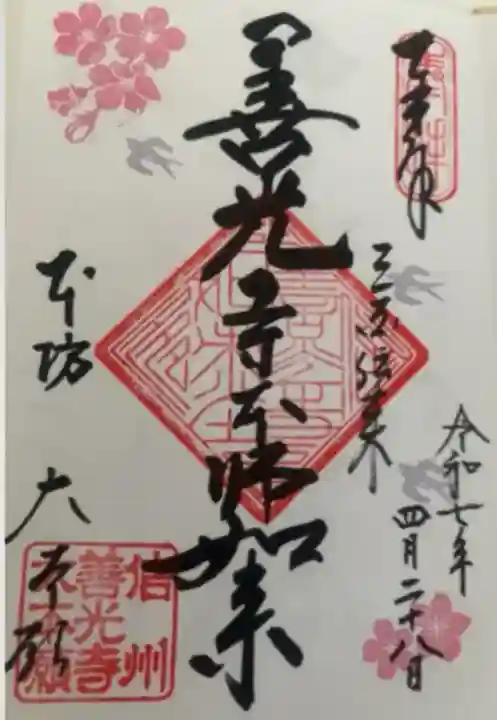 奉拝
三国伝来
令和七年
四月二十八日
善光寺本師如来
本坊
大本願
信州
善光寺
大本願